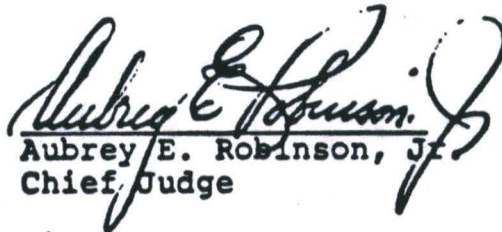 Aubrey E Robinson. Jr
Aubrey E. Robinson, Jr.
Chief Judge